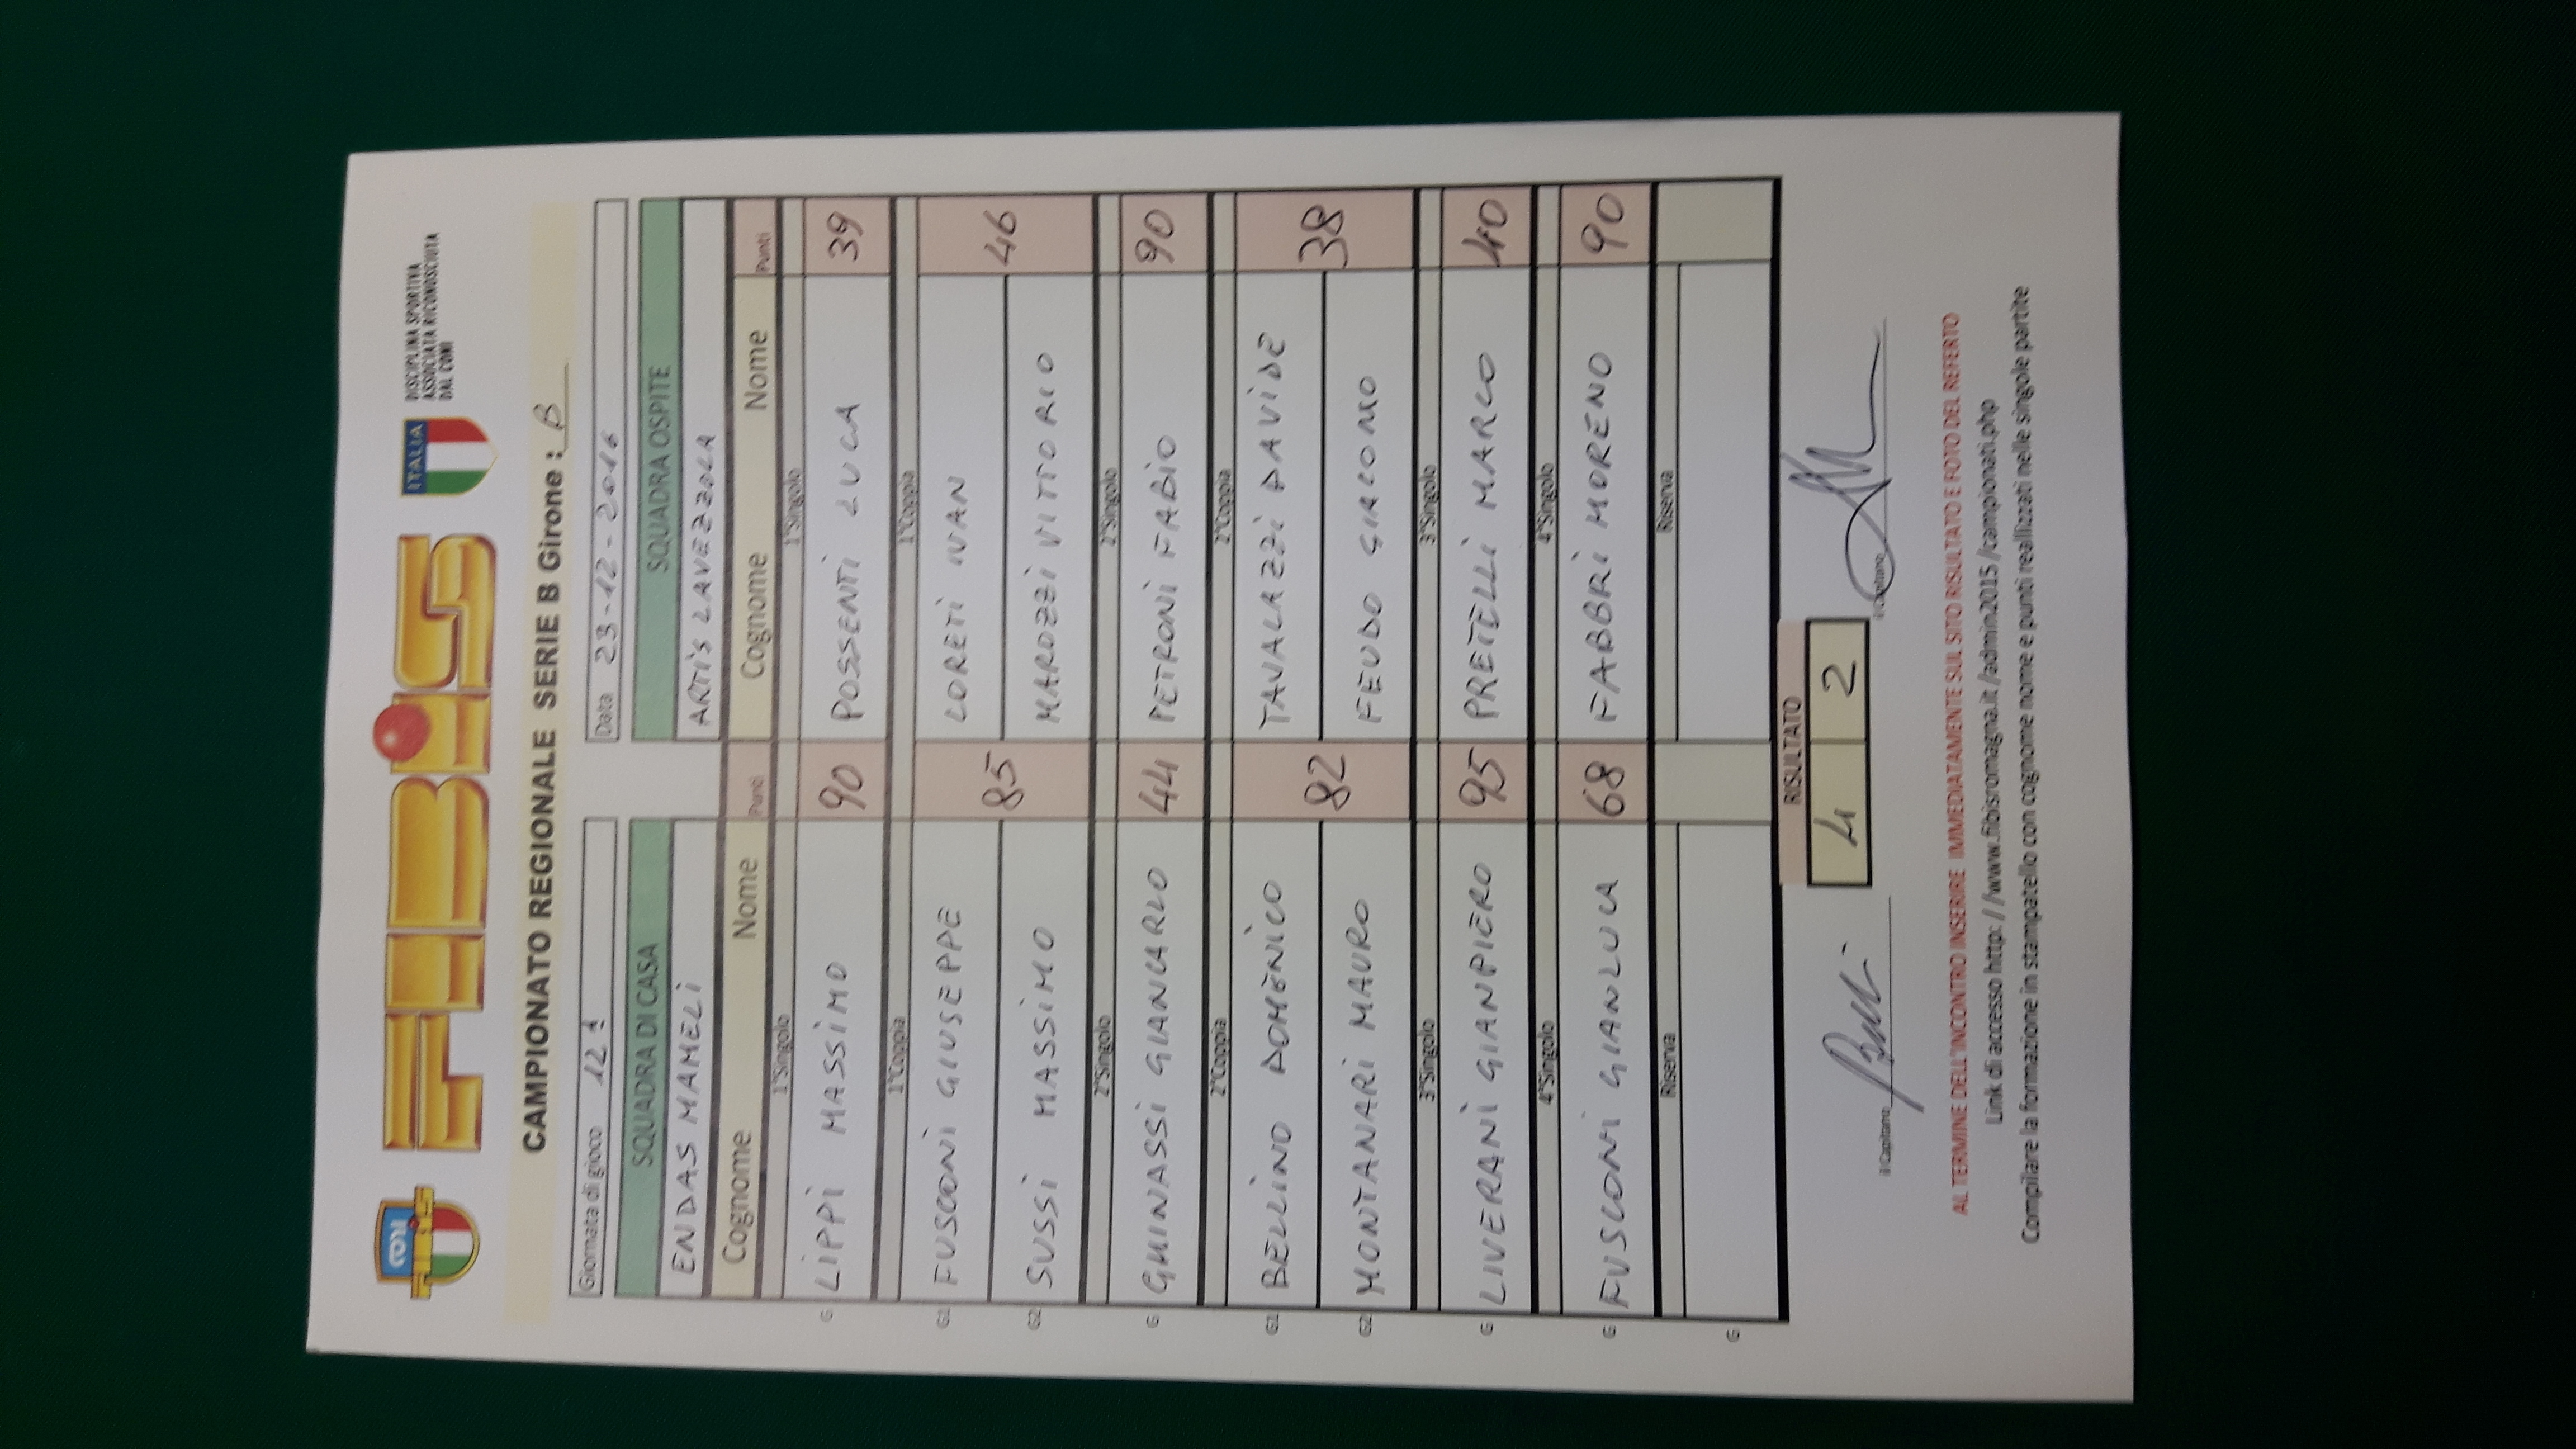 CONI
FIBIS
FIBIS
ITALIA
DISCIPLINA SPORTIVA
ASSOCIATA RICONOSCIUTA
DAL CONI
CAMPIONATO REGIONALE SERIE B Girone : B
Giornata di gioco 12ª Data 23-12-2016
SQUADRA DI CASA SQUADRA OSPITE
ENDAS MAMELI ARTIS LAVEZZOLA
Cognome Nome Punti Cognome Nome Punti
1°Singolo 1°Singolo
G LIPPI MASSIMO 90 POSSENTI LUCA 39
1°Coppia 1°Coppia
G1 FUSCONI GIUSEPPE 85 LORETI IVAN 46
G2 SUSSI MASSIMO MAROZZI VITTORIO
2°Singolo 2°Singolo
G GHINASSI GIANCARLO 44 PETRONI FABIO 90
2°Coppia 2°Coppia
G1 BELLINO DOMENICO 82 TAVALAZZI DAVIDE 38
G2 MONTANARI MAURO FEUDO GIACOMO
3°Singolo 3°Singolo
G LIVERANI GIANPIERO 95 PRETELLI MARCO 40
4°Singolo 4°Singolo
G FUSCONI GIANLUCA 68 FABBRI MORENO 90
Riserva Riserva
G
RISULTATO
4 2
il Capitano il Capitano
AL TERMINE DELL'INCONTRO INSERIRE IMMEDIATAMENTE SUL SITO RISULTATO E FOTO DEL REFERTO
Link di accesso http://www.fibisromagna.it/admin2015/campionati.php
Compilare la formazione in stampatello con cognome nome e punti reallizzati nelle singole partite